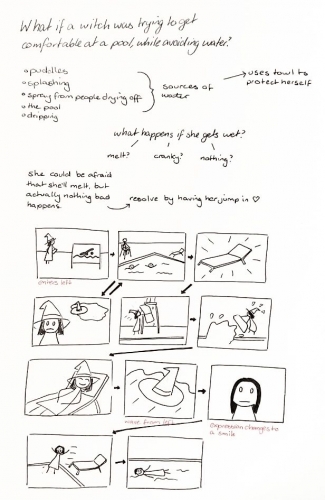 What if a witch was trying to get
comfortable at a pool, while avoiding water?
• puddles
• splashing
• spray from people drying off
• the pool
• dripping
sources of
water
uses towl to
protect herself
what happens if she gets wet?
melt? cranky? nothing?
She could be afraid
that she'll melt, but
actually nothing bad
happens
resolve by having her jump in ♡
enters left
wave from left
expression changes to
a smile